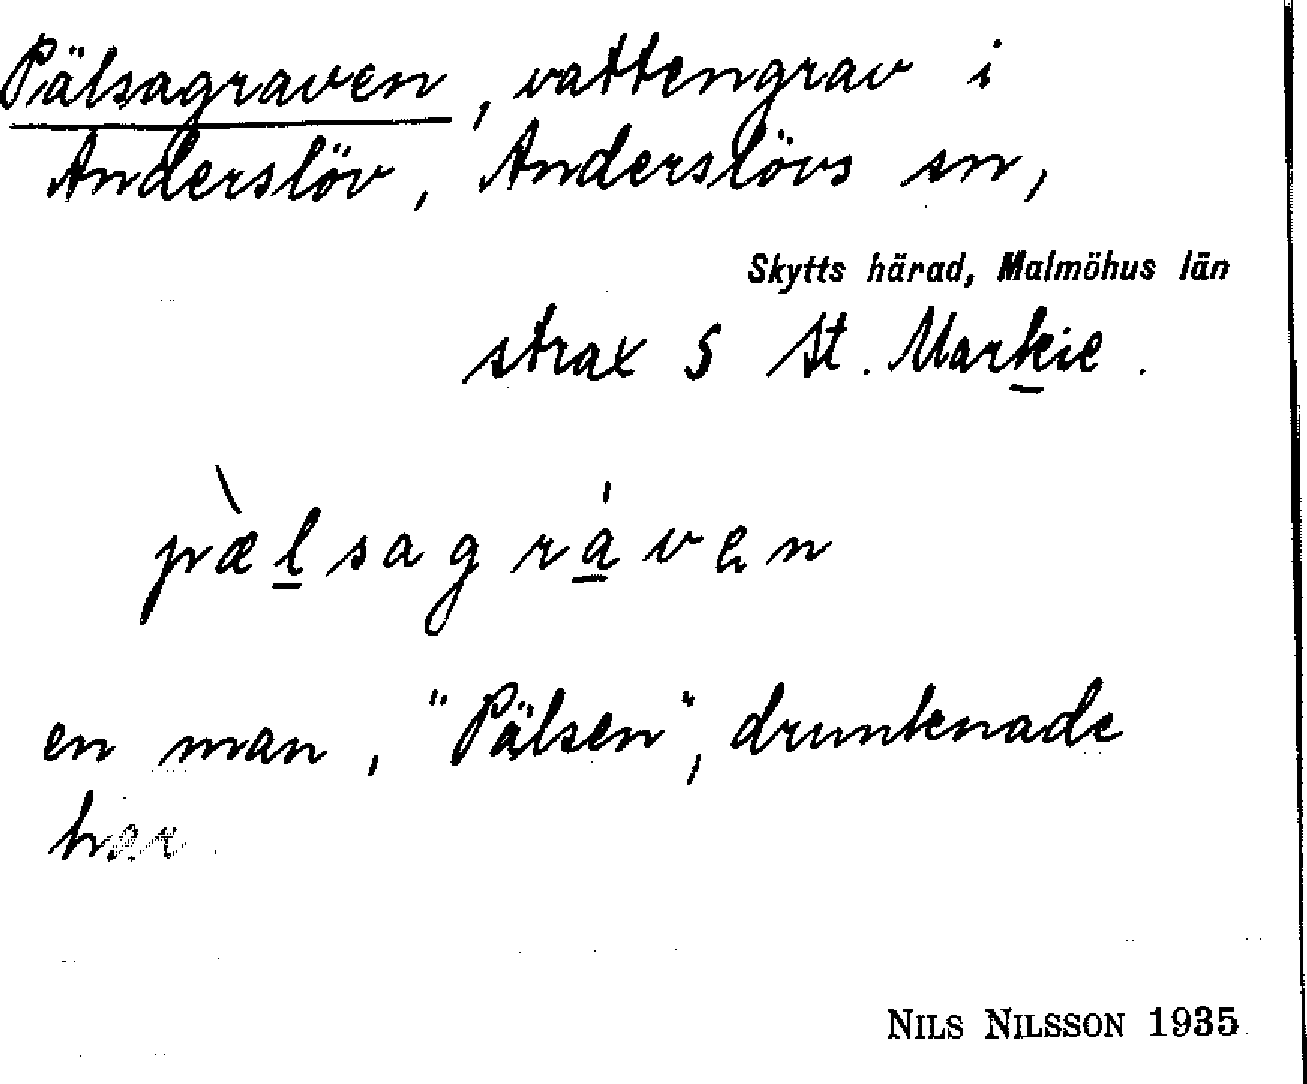 Pälsagraven, vattengrav i
Anderslöv, Anderslövs sn,
Skytts härad, Malmöhus län
strax S St. Markie.
pæ̀lsagráven
en man, "Pälsen", drunknade
här.
NILS NILSSON 1935